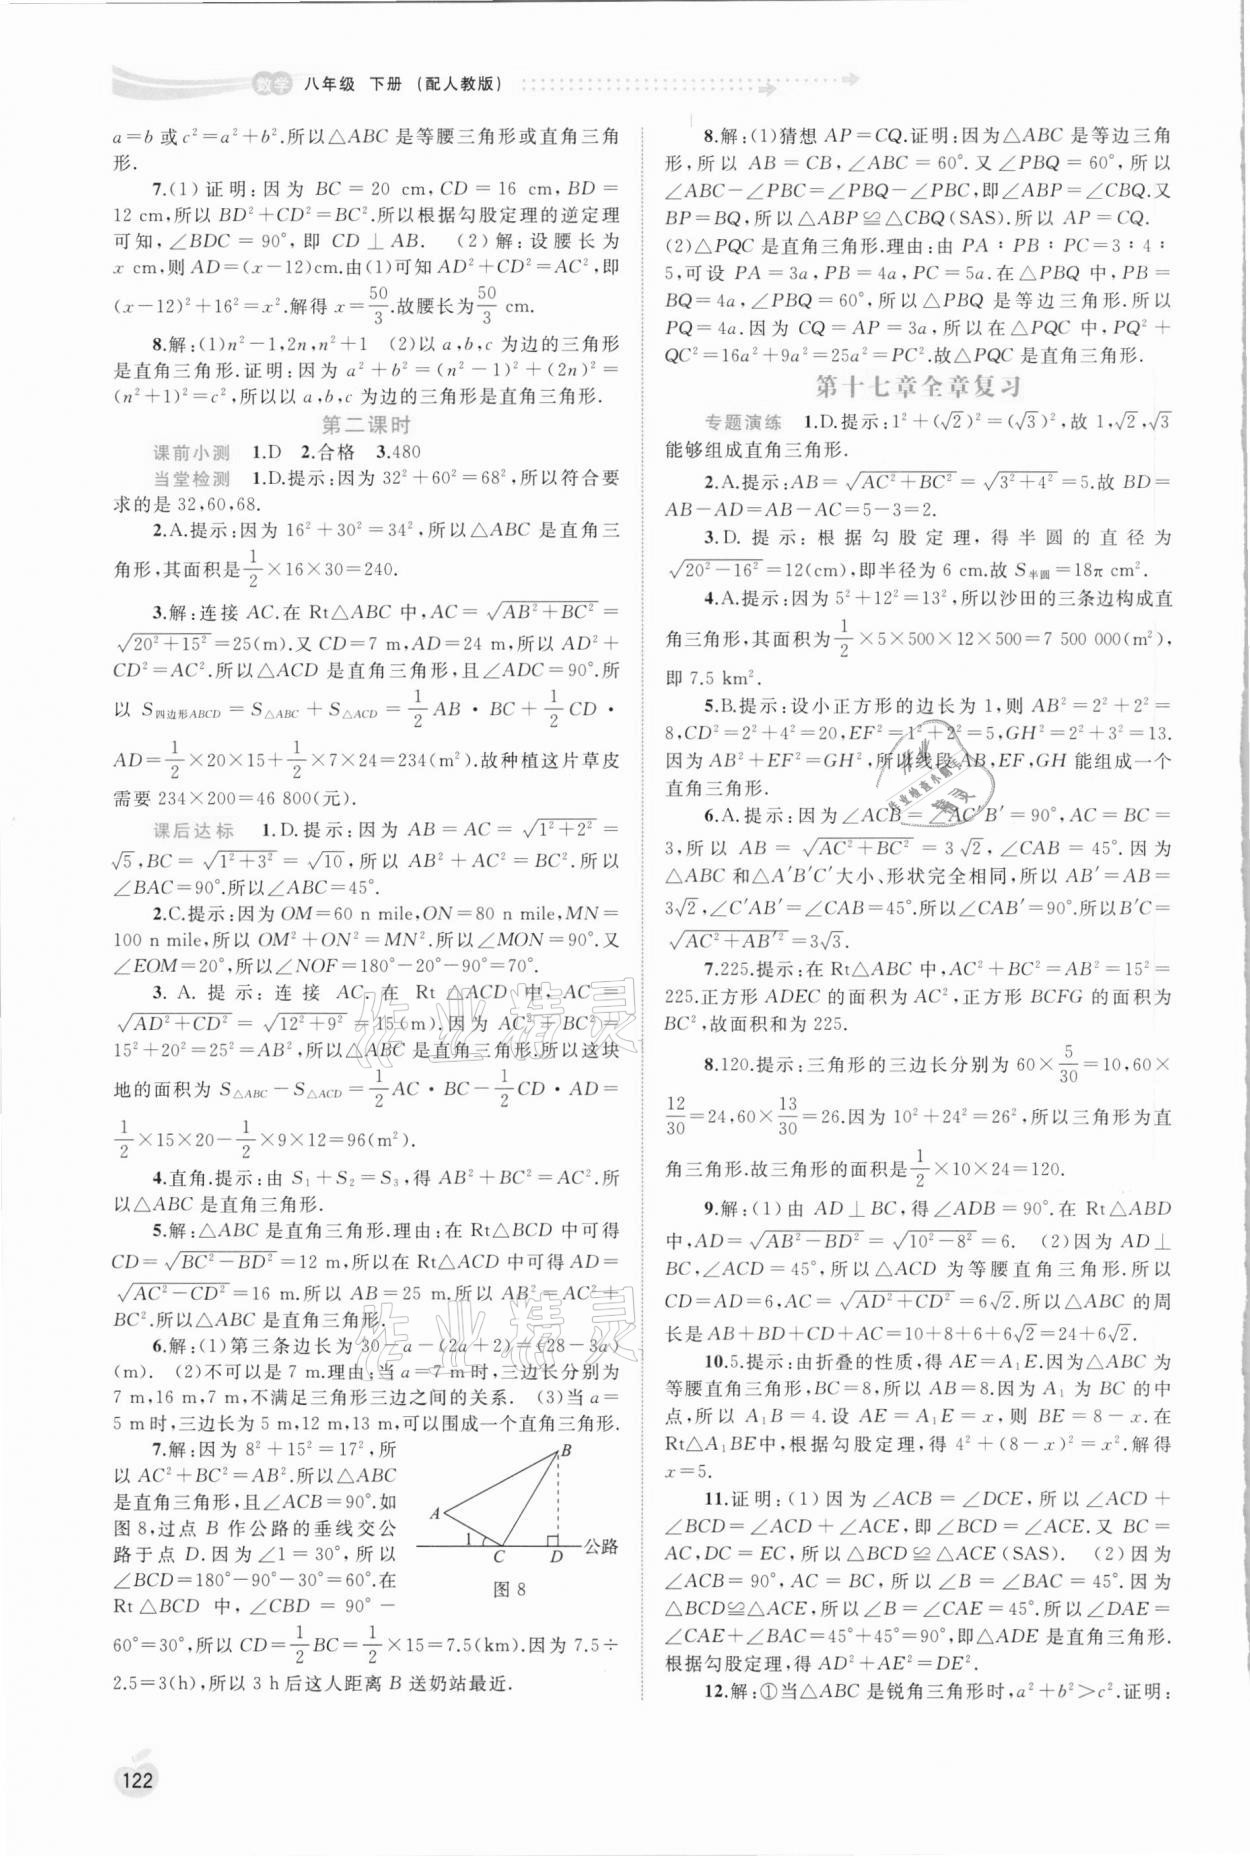 数学 八年级 下册 (配人教版)
a=b 或 c²=a²+b².所以△ABC 是等腰三角形或直角三角
形.
7.(1)证明:因为 BC=20 cm,CD=16 cm,BD=
12 cm,所以 BD²+CD²=BC².所以根据勾股定理的逆定理
可知,∠BDC=90°,即 CD⊥AB. (2)解:设腰长为
x cm,则 AD=(x-12)cm.由(1)可知 AD²+CD²=AC²,即
(x-12)²+16²=x².解得 x=50/3.故腰长为50/3 cm.
8.解:(1)n²-1,2n,n²+1 (2)以 a,b,c 为边的三角形
是直角三角形.证明:因为 a²+b²=(n²-1)²+(2n)²=
(n²+1)²=c²,所以以 a,b,c 为边的三角形是直角三角形.
第二课时
课前小测 1.D 2.合格 3.480
当堂检测 1.D.提示:因为 32²+60²=68²,所以符合要
求的是 32,60,68.
2.A.提示:因为 16²+30²=34²,所以△ABC 是直角三
角形,其面积是1/2×16×30=240.
3.解:连接 AC.在 Rt△ABC 中,AC=√(AB²+BC²)=
√(20²+15²)=25(m).又 CD=7 m,AD=24 m,所以 AD²+
CD²=AC².所以△ACD 是直角三角形,且∠ADC=90°.所
以 S四边形ABCD=S△ABC+S△ACD=1/2AB·BC+1/2CD·
AD=1/2×20×15+1/2×7×24=234(m²).故种植这片草皮
需要 234×200=46 800(元).
课后达标 1.D.提示:因为 AB=AC=√(1²+2²)=
√5,BC=√(1²+3²)=√10,所以 AB²+AC²=BC².所以
∠BAC=90°.所以∠ABC=45°.
2.C.提示:因为 OM=60 n mile,ON=80 n mile,MN=
100 n mile,所以 OM²+ON²=MN².所以∠MON=90°.又
∠EOM=20°,所以∠NOF=180°-20°-90°=70°.
3.A.提示:连接 AC.在 Rt△ACD 中,AC=
√(AD²+CD²)=√(12²+9²)=15(m).因为 AC²+BC²=
15²+20²=25²=AB²,所以△ABC 是直角三角形.所以这块
地的面积为 S△ABC-S△ACD=1/2AC·BC-1/2CD·AD=
1/2×15×20-1/2×9×12=96(m²).
4.直角.提示:由 S₁+S₂=S₃,得 AB²+BC²=AC².所
以△ABC 是直角三角形.
5.解:△ABC 是直角三角形.理由:在 Rt△BCD 中可得
CD=√(BC²-BD²)=12 m,所以在 Rt△ACD 中可得 AD=
√(AC²-CD²)=16 m.所以 AB=25 m,所以 AB²=AC²+
BC².所以△ABC 是直角三角形.
6.解:(1)第三条边长为 30-a-(2a+2)=(28-3a)
(m). (2)不可以是 7 m.理由:当 a=7 m 时,三边长分别为
7 m,16 m,7 m,不满足三角形三边之间的关系. (3)当 a=
5 m时,三边长为 5 m,12 m,13 m,可以围成一个直角三角形.
7.解:因为 8²+15²=17²,所
以 AC²+BC²=AB².所以△ABC
是直角三角形,且∠ACB=90°.如
图 8,过点 B 作公路的垂线交公
路于点 D.因为∠1=30°,所以
∠BCD=180°-90°-30°=60°.在
Rt△BCD 中,∠CBD=90°-
60°=30°,所以 CD=1/2BC=1/2×15=7.5(km).因为 7.5÷
2.5=3(h),所以 3 h后这人距离 B 送奶站最近.
B
A
1
C
D
公路
图 8
8.解:(1)猜想 AP=CQ.证明:因为△ABC 是等边三角
形,所以 AB=CB,∠ABC=60°.又∠PBQ=60°,所以
∠ABC-∠PBC=∠PBQ-∠PBC,即∠ABP=∠CBQ.又
BP=BQ,所以△ABP≌△CBQ(SAS).所以 AP=CQ.
(2)△PQC 是直角三角形.理由:由 PA∶PB∶PC=3∶4∶
5,可设 PA=3a,PB=4a,PC=5a.在△PBQ 中,PB=
BQ=4a,∠PBQ=60°,所以△PBQ 是等边三角形.所以
PQ=4a.因为 CQ=AP=3a,所以在△PQC 中,PQ²+
QC²=16a²+9a²=25a²=PC².故△PQC 是直角三角形.
第十七章全章复习
专题演练 1.D.提示:1²+(√2)²=(√3)²,故 1,√2,√3
能够组成直角三角形.
2.A.提示:AB=√(AC²+BC²)=√(3²+4²)=5.故 BD=
AB-AD=AB-AC=5-3=2.
3.D.提示:根据勾股定理,得半圆的直径为
√(20²-16²)=12(cm),即半径为 6 cm.故 S半圆=18π cm².
4.A.提示:因为 5²+12²=13²,所以沙田的三条边构成直
角三角形,其面积为1/2×5×500×12×500=7 500 000(m²),
即 7.5 km².
5.B.提示:设小正方形的边长为 1,则 AB²=2²+2²=
8,CD²=2²+4²=20,EF²=1²+2²=5,GH²=2²+3²=13.
因为 AB²+EF²=GH²,所以线段 AB,EF,GH 能组成一个
直角三角形.
6.A.提示:因为∠ACB=∠AC′B′=90°,AC=BC=
3,所以 AB=√(AC²+BC²)=3√2,∠CAB=45°.因为
△ABC 和△A′B′C′大小、形状完全相同,所以 AB′=AB=
3√2,∠C′AB′=∠CAB=45°.所以∠CAB′=90°.所以B′C=
√(AC²+AB′²)=3√3.
7.225.提示:在 Rt△ABC 中,AC²+BC²=AB²=15²=
225.正方形 ADEC 的面积为 AC²,正方形 BCFG 的面积为
BC²,故面积和为 225.
8.120.提示:三角形的三边长分别为 60×5/30=10,60×
12/30=24,60×13/30=26.因为 10²+24²=26²,所以三角形为直
角三角形.故三角形的面积是1/2×10×24=120.
9.解:(1)由 AD⊥BC,得∠ADB=90°.在 Rt△ABD
中,AD=√(AB²-BD²)=√(10²-8²)=6. (2)因为 AD⊥
BC,∠ACD=45°,所以△ACD 为等腰直角三角形.所以
CD=AD=6,AC=√(AD²+CD²)=6√2.所以△ABC 的周
长是AB+BD+CD+AC=10+8+6+6√2=24+6√2.
10.5.提示:由折叠的性质,得 AE=A₁E.因为△ABC 为
等腰直角三角形,BC=8,所以 AB=8.因为 A₁ 为 BC 的中
点,所以 A₁B=4.设 AE=A₁E=x,则 BE=8-x.在
Rt△A₁BE中,根据勾股定理,得 4²+(8-x)²=x².解得
x=5.
11.证明:(1)因为∠ACB=∠DCE,所以∠ACD+
∠BCD=∠ACD+∠ACE,即∠BCD=∠ACE.又 BC=
AC,DC=EC,所以△BCD≌△ACE(SAS). (2)因为
∠ACB=90°,AC=BC,所以∠B=∠BAC=45°.因为
△BCD≌△ACE,所以∠B=∠CAE=45°.所以∠DAE=
∠CAE+∠BAC=45°+45°=90°,即△ADE 是直角三角形.
根据勾股定理,得 AD²+AE²=DE².
12.解:①当△ABC 是锐角三角形时,a²+b²>c².证明:
作业精灵
作业精灵
122